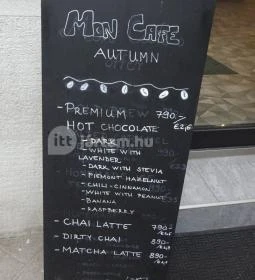 MON CAFE
AUTUMN
- PREMIUM HOT CHOCOLATE 790.-
- DARK
- WHITE WITH LAVENDER
- DARK WITH STEVIA
- PIEMONT HAZELNUT
- CHILI-CINNAMON
- WHITE WITH PEANUT
- BANANA
- RASPBERRY
- CHAI LATTE 790.-
- DIRTY CHAI 890.-
- MATCHA LATTE 890.-
itt jártam.hu